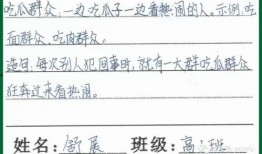 吃瓜群众：一边吃瓜子一边看热闹的人。示例：吃
面群众、吃肉群众。
造句：每次别人犯囧事时，就有一大群吃瓜群众
狂奔过来看热闹。
姓名：舒展 班级：高一班